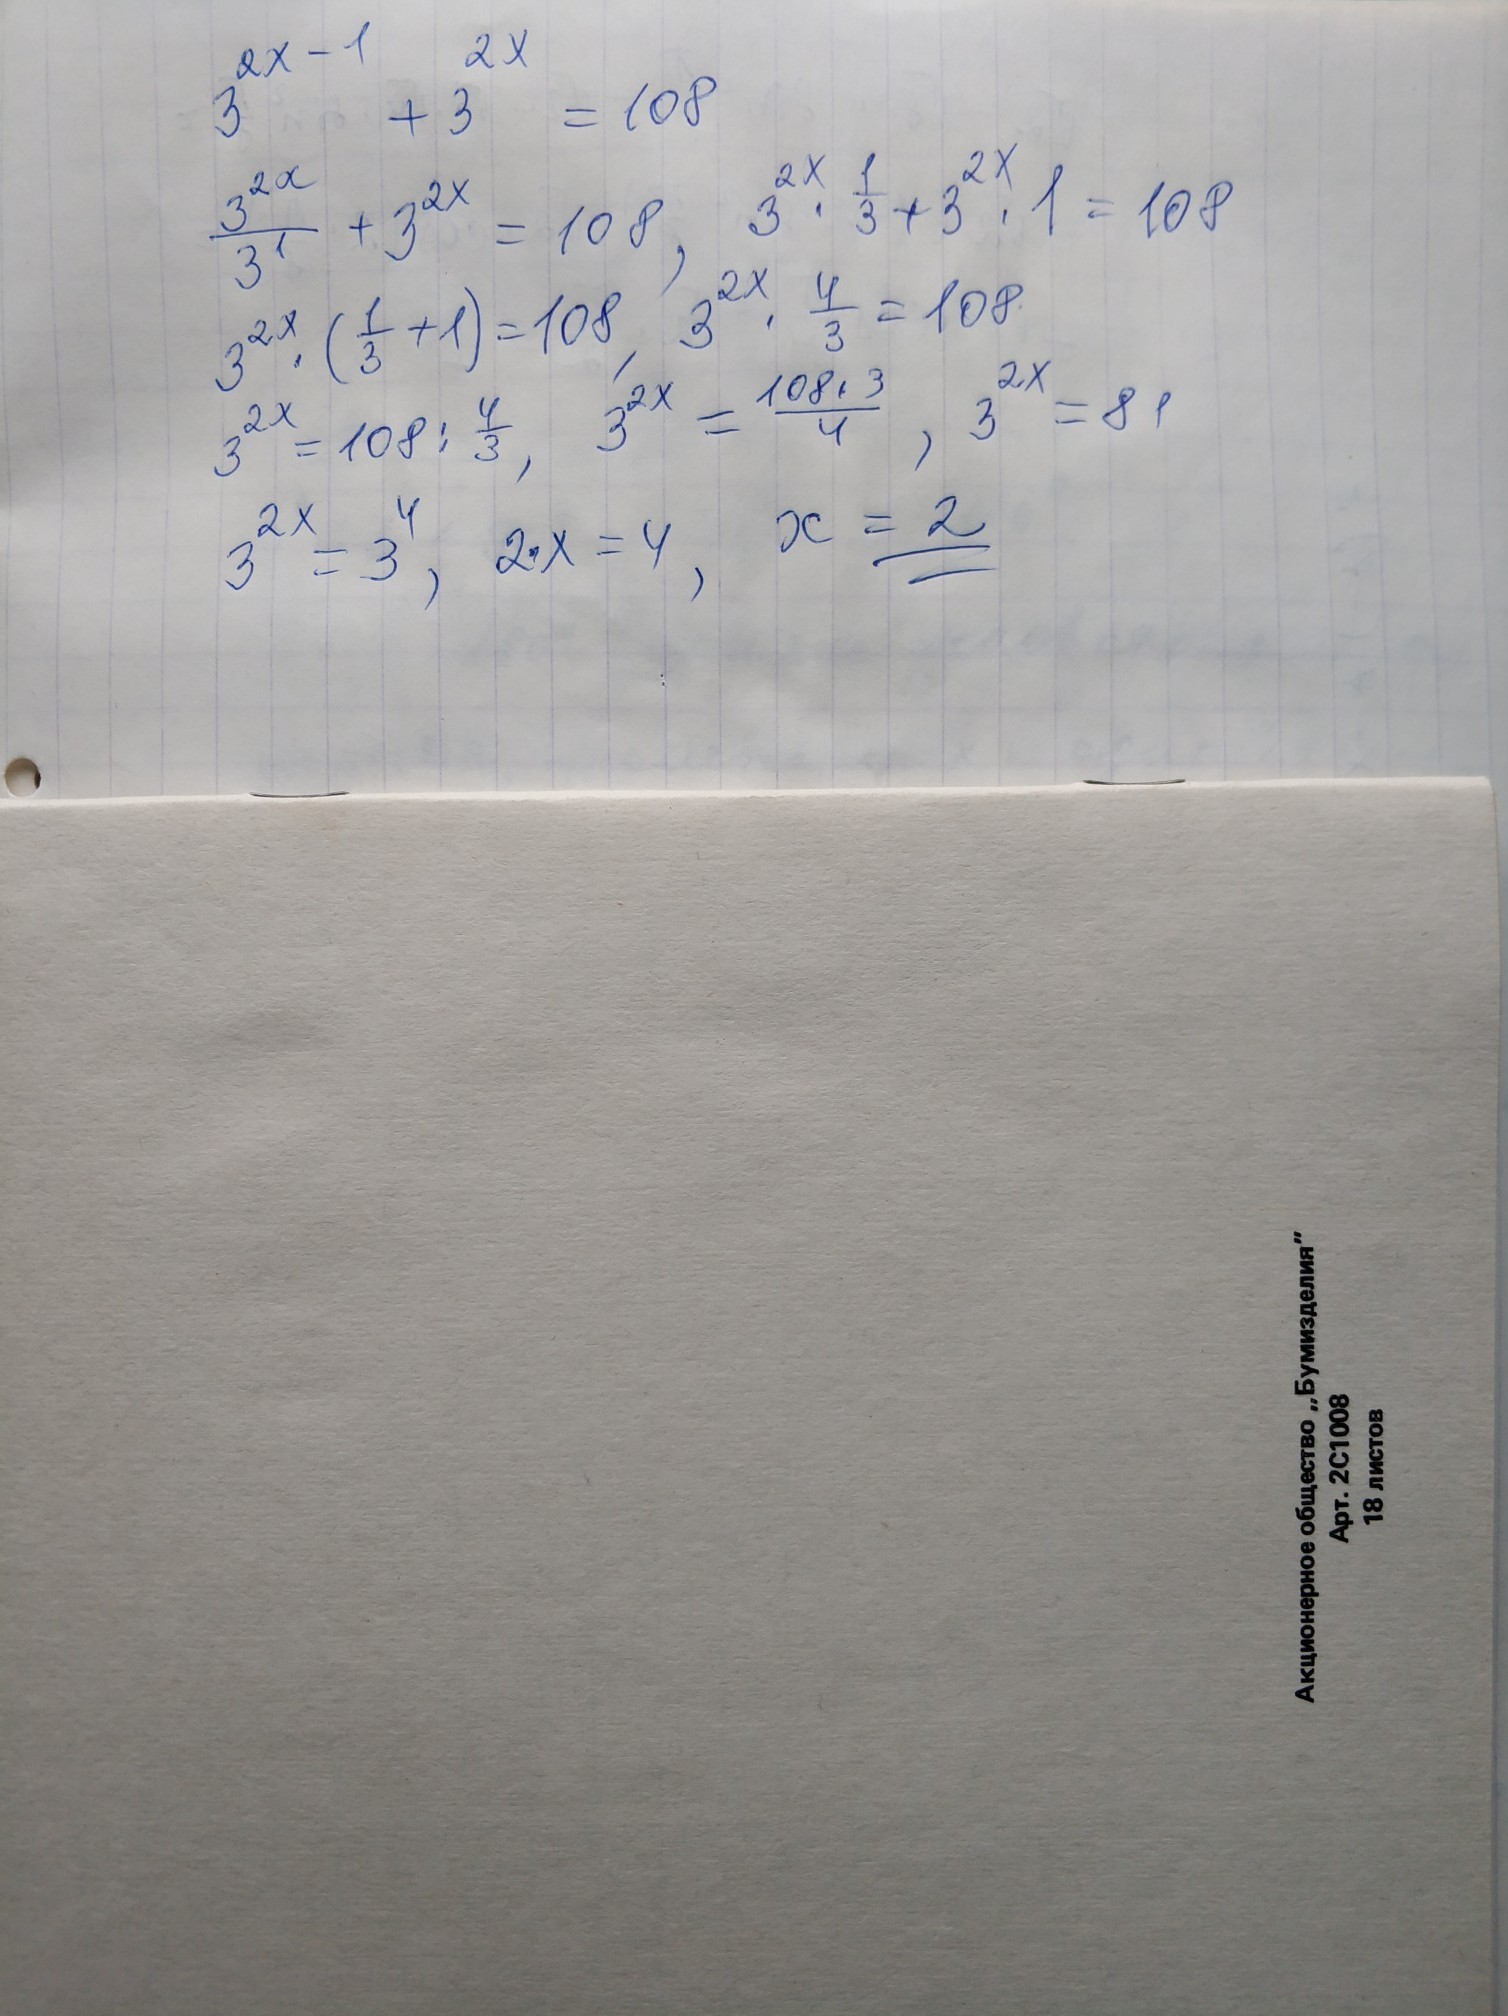 3^{2x-1} + 3^{2x} = 108
\frac{3^{2x}}{3^1} + 3^{2x} = 108, 3^{2x} · \frac{1}{3} + 3^{2x} · 1 = 108
3^{2x} · (\frac{1}{3} + 1) = 108, 3^{2x} · \frac{4}{3} = 108
3^{2x} = 108 : \frac{4}{3}, 3^{2x} = \frac{108 · 3}{4}, 3^{2x} = 81
3^{2x} = 3^4, 2·x = 4, x = 2
Акционерное общество „Бумизделия”
Арт. 2С1008
18 листов